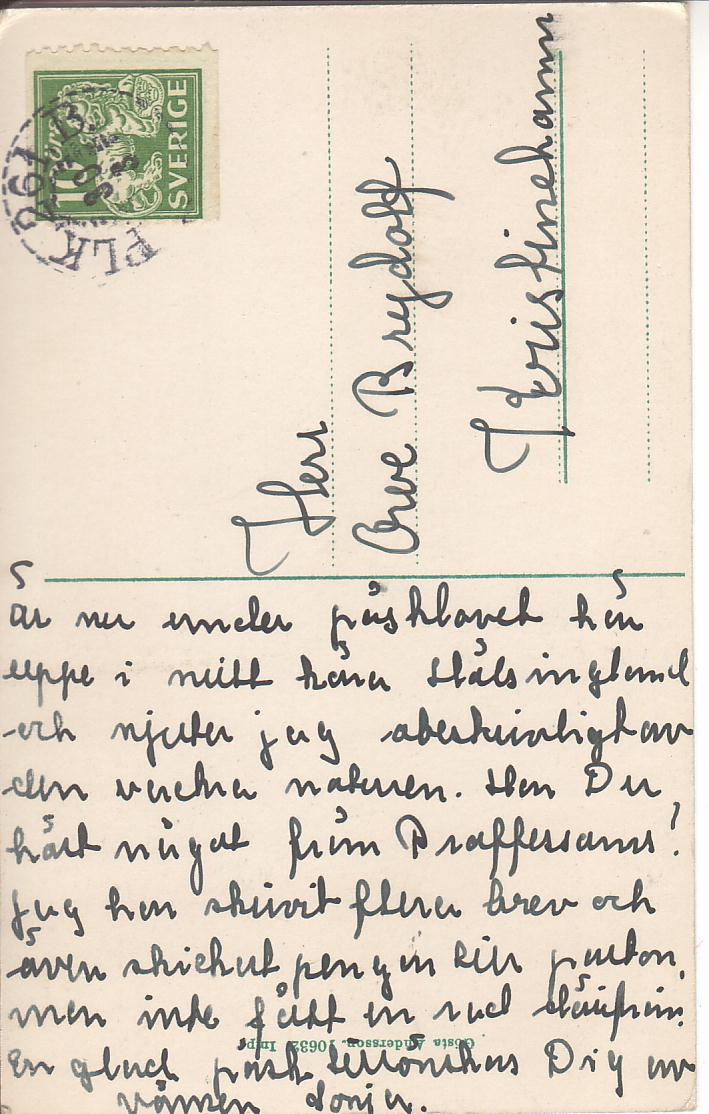 SVERIGE
10
PLK 561
Herr
Owe Brydolf
Kristinehamn
Är nu under påsklovet här
uppe i mitt kära Hälsingland
och njuter jag obeskrivligt av
den vackra naturen. Har Du
hört något från Praffessans?
Jag har skrivit flera brev och
även skickat pengar till porton,
men inte fått en rad därifrån.
En glad påsk tillönskas Dig av
vännen Sonja.
Gösta Andersson, 10632 Imp.